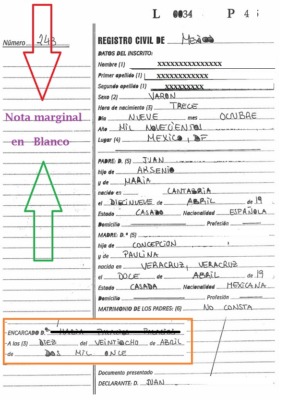 L 0034 P 4
Número 243
REGISTRO CIVIL DE
Nota marginal
en Blanco
DATOS DEL INSCRITO:
Nombre (1) XXXXXXXXXXXXX
Primer apellido (1) XXXXXXXXXXXX
Segundo apellido (1) XXXXXXXXXXX
Sexo (2) VARON
Hora de nacimiento (3) TRECE
Día NUEVE mes OCTUBRE
Año MIL NOVECIENTOS
Lugar (4) MEXICO, DF
PADRE: D. (5) JUAN
hijo de ARSENIO
y de MARIA
nacido en CANTABRIA
el DIECINUEVE de ABRIL de 19
Estado CASADO Nacionalidad ESPAÑOLA
Domicilio Profesión
MADRE: D.ª (5)
hija de CONCEPCION
y de PAULINA
nacida en VERACRUZ, VERACRUZ
el DOCE de ABRIL de 19
Estado CASADA Nacionalidad MEXICANA
Domicilio Profesión
MATRIMONIO DE LOS PADRES: (6) NO CONSTA
ENCARGADO D.
A las (3) DIEZ del VEINTIOCHO de ABRIL
de DOS MIL ONCE
Documento presentado
DECLARANTE: D. JUAN